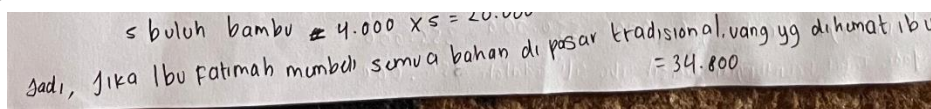 5 buluh bambu = 4.000 x 5 = 20.000
Jadi, Jika Ibu Fatimah membeli semua bahan di pasar tradisional, uang yg dihemat ibu
= 34.800